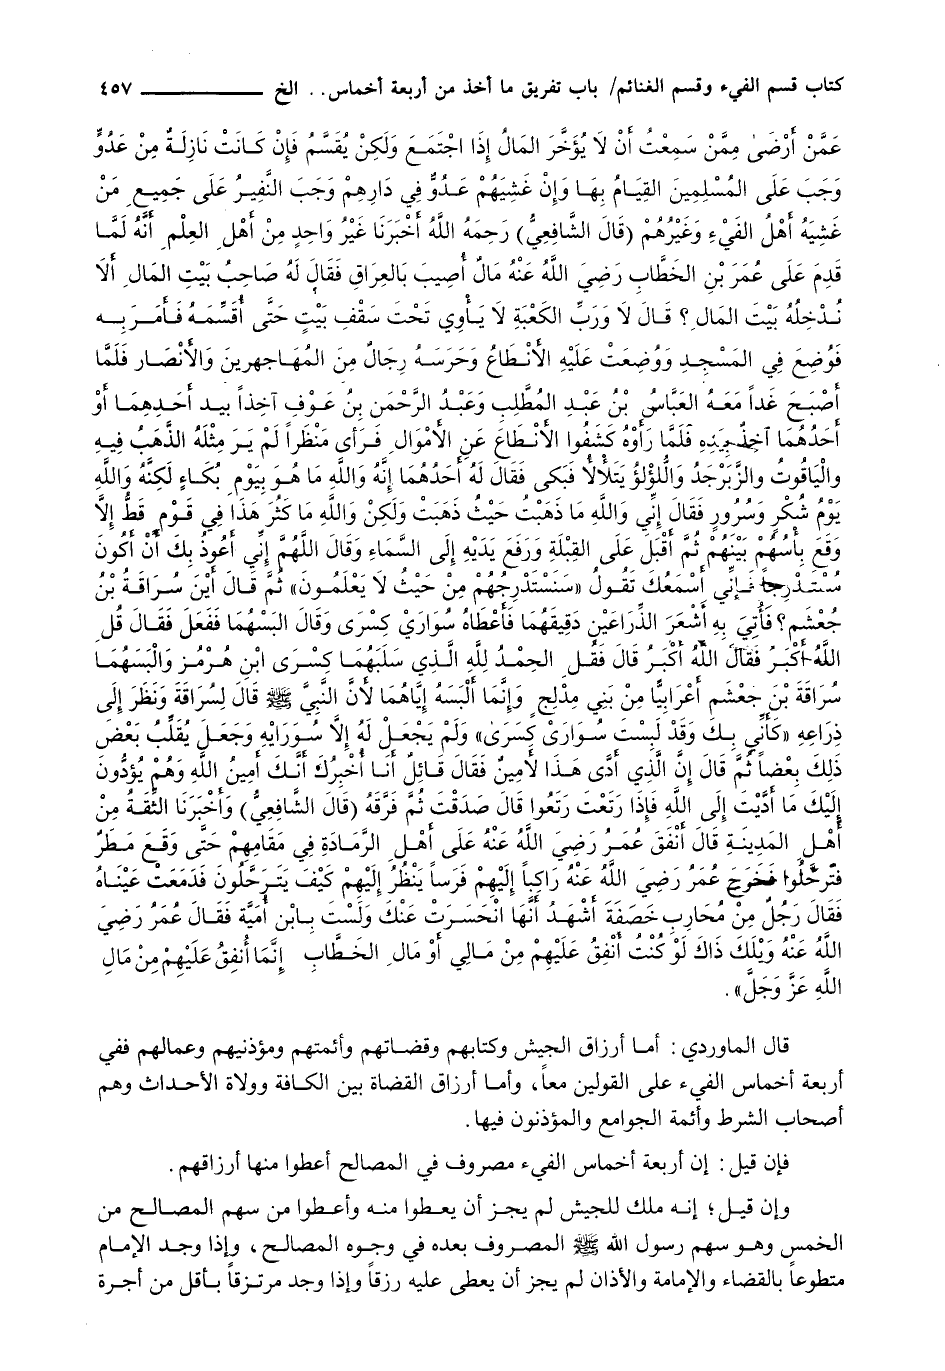 كتاب قسم الفيء وقسم الغنائم/ باب تفريق ما أخذ من أربعة أخماس.. الخ ٤٥٧
عَمَّنْ أَرْضَىٰ مِمَّنْ سَمِعْتُ أَنْ لَا يُؤَخَّرَ المَالُ إِذَا اجْتَمَعَ وَلَكِنْ يُقَسَّمُ فَإِنْ كَانَتْ نَازِلَةٌ مِنْ عَدُوٍّ
وَجَبَ عَلَى المُسْلِمِينَ القِيَامُ بِهَا وَإِنْ غَشِيَهُمْ عَدُوٌّ فِي دَارِهِمْ وَجَبَ النَّفِيرُ عَلَى جَمِيعِ مَنْ
غَشِيَهُ أَهْلُ الفَيْءِ وَغَيْرُهُمْ (قَالَ الشَّافِعِيُّ) رَحِمَهُ اللَّهُ أَخْبَرَنَا غَيْرُ وَاحِدٍ مِنْ أَهْلِ العِلْمِ أَنَّهُ لَمَّا
قَدِمَ عَلَى عُمَرَ بْنِ الخَطَّابِ رَضِيَ اللَّهُ عَنْهُ مَالٌ أُصِيبَ بِالعِرَاقِ فَقَالَ لَهُ صَاحِبُ بَيْتِ المَالِ أَلَا
نُدْخِلُهُ بَيْتَ المَالِ؟ قَالَ لَا وَرَبِّ الكَعْبَةِ لَا يَأْوِي تَحْتَ سَقْفِ بَيْتٍ حَتَّى أُقَسِّمَهُ فَأَمَرَ بِهِ
فَوُضِعَ فِي المَسْجِدِ وَوُضِعَتْ عَلَيْهِ الأَنْطَاعُ وَحَرَسَهُ رِجَالٌ مِنَ المُهَاجِرِينَ وَالأَنْصَارِ فَلَمَّا
أَصْبَحَ غَداً مَعَهُ العَبَّاسُ بْنُ عَبْدِ المُطَّلِبِ وَعَبْدُ الرَّحْمَنِ بنُ عَوْفٍ آخِذاً بِيَدِ أَحَدِهِمَا أَوْ
أَحَدُهُمَا آخِذٌ بِيَدِهِ فَلَمَّا رَأَوْهُ كَشَفُوا الأَنْطَاعَ عَنِ الأَمْوَالِ فَرَأَى مَنْظَراً لَمْ يَرَ مِثْلَهُ الذَّهَبُ فِيهِ
وَالْيَاقُوتُ والزَّبَرْجَدُ وَاللُّؤْلُؤُ يَتَلَأْلَأُ فَبَكَى فَقَالَ لَهُ أَحَدُهُمَا إِنَّهُ وَاللَّهِ مَا هُوَ بِيَوْمِ بُكَاءٍ لَكِنَّهُ وَاللَّهِ
يَوْمُ شُكْرٍ وَسُرُورٍ فَقَالَ إِنِّي وَاللَّهِ مَا ذَهَبْتُ حَيْثُ ذَهَبْتَ وَلَكِنْ وَاللَّهِ مَا كَثُرَ هَذَا فِي قَوْمٍ قَطُّ إِلَّا
وَقَعَ بِأْسُهُمْ بَيْنَهُمْ ثُمَّ أَقْبَلَ عَلَى القِبْلَةِ وَرَفَعَ يَدَيْهِ إِلَى السَّمَاءِ وَقَالَ اللَّهُمَّ إِنِّي أَعُوذُ بِكَ أَنْ أَكُونَ
مُسْتَدْرَجاً فَإِنِّي أَسْمَعُكَ تَقُولُ «سَنَسْتَدْرِجُهُمْ مِنْ حَيْثُ لَا يَعْلَمُونَ» ثُمَّ قَالَ أَيْنَ سُرَاقَةُ بْنُ
جُعْشَمٍ؟ فَأُتِيَ بِهِ أَشْعَرَ الذِّرَاعَيْنِ دَقِيقَهُمَا فَأَعْطَاهُ سُوَارَي كِسْرَى وَقَالَ البَسْهُمَا فَفَعَلَ فَقَالَ قُلِ
اللَّهُ أَكْبَرُ فَقَالَ اللَّهُ أَكْبَرُ قَالَ فَقُلِ الحَمْدُ لِلَّهِ الَّذِي سَلَبَهُمَا كِسْرَى ابْنِ هُرْمُزَ وَأَلْبَسَهُمَا
سُرَاقَةَ بْنَ جَعْشَمٍ أَعْرَابِيًّا مِنْ بَنِي مِدْلِجٍ وَإِنَّمَا أَلْبَسَهُ إِيَّاهُمَا لأَنَّ النَّبِيَّ ﷺ قَالَ لِسُرَاقَةَ وَنَظَرَ إِلَى
ذِرَاعِهِ «كَأَنِّي بِكَ وَقَدْ لَبِسْتَ سُوَارَىْ كِسْرَى» وَلَمْ يَجْعَلْ لَهُ إِلَّا سُوَرَايْهِ وَجَعَلَ يُقَلِّبُ بَعْضَ
ذَلِكَ بِعْضاً ثُمَّ قَالَ إِنَّ الَّذِي أَدَّى هَذَا لأَمِينٌ فَقَالَ قَائِلٌ أَنَا أُخْبِرُكَ أَنَّكَ أَمِينُ اللَّهِ وَهُمْ يُؤَدُّونَ
إِلَيْكَ مَا أَدَّيْتَ إِلَى اللَّهِ فَإِذَا رَتَعْتَ رَتَعُوا قَالَ صَدَقْتَ ثُمَّ فَرَّقَهُ (قَالَ الشَّافِعِيُّ) وَأَخْبَرَنَا الثِّقَةُ مِنْ
أَهْلِ المَدِينَةِ قَالَ أَنْفَقَ عُمَرُ رَضِيَ اللَّهُ عَنْهُ عَلَى أَهْلِ الرَّمَادَةِ فِي مَقَامِهِمْ حَتَّى وَقَعَ مَطَرٌ
فَتَرَحَّلُوا فَخَرَجَ عُمَرُ رَضِيَ اللَّهُ عَنْهُ رَاكِباً إِلَيْهِمْ فَرَساً يَنْظُرُ إِلَيْهِمْ كَيْفَ يَتَرَحَّلُونَ فَدَمَعَتْ عَيْنَاهُ
فَقَالَ رَجُلٌ مِنْ مُحَارِبِ خَصَفَةَ أَشْهَدُ أَنَّهَا انْحَسَرَتْ عَنْكَ وَلَسْتَ بِابْنِ أُمَيَّةَ فَقَالَ عُمَرُ رَضِيَ
اللَّهُ عَنْهُ وَيْلَكَ ذَاكَ لَوْ كُنْتُ أَنْفِقُ عَلَيْهِمْ مِنْ مَالِي أَوْ مَالِ الخَطَّابِ إِنَّمَا أُنْفِقُ عَلَيْهِمْ مِنْ مَالِ
اللَّهِ عَزَّ وَجَلَّ».
قال الماوردي: أما أرزاق الجيش وكتابهم وقضاتهم وأئمتهم ومؤذنيهم وعمالهم ففي
أربعة أخماس الفيء على القولين معاً، وأما أرزاق القضاة بين الكافة وولاة الأحداث وهم
أصحاب الشرط وأئمة الجوامع والمؤذنون فيها.
فإن قيل: إن أربعة أخماس الفيء مصروف في المصالح أعطوا منها أرزاقهم.
وإن قيل؛ إنه ملك للجيش لم يجز أن يعطوا منه وأعطوا من سهم المصالح من
الخمس وهو سهم رسول الله ﷺ المصروف بعده في وجوه المصالح، وإذا وجد الإمام
متطوعاً بالقضاء والإمامة والأذان لم يجز أن يعطى عليه رزقاً وإذا وجد مرتزقاً بأقل من أجرة